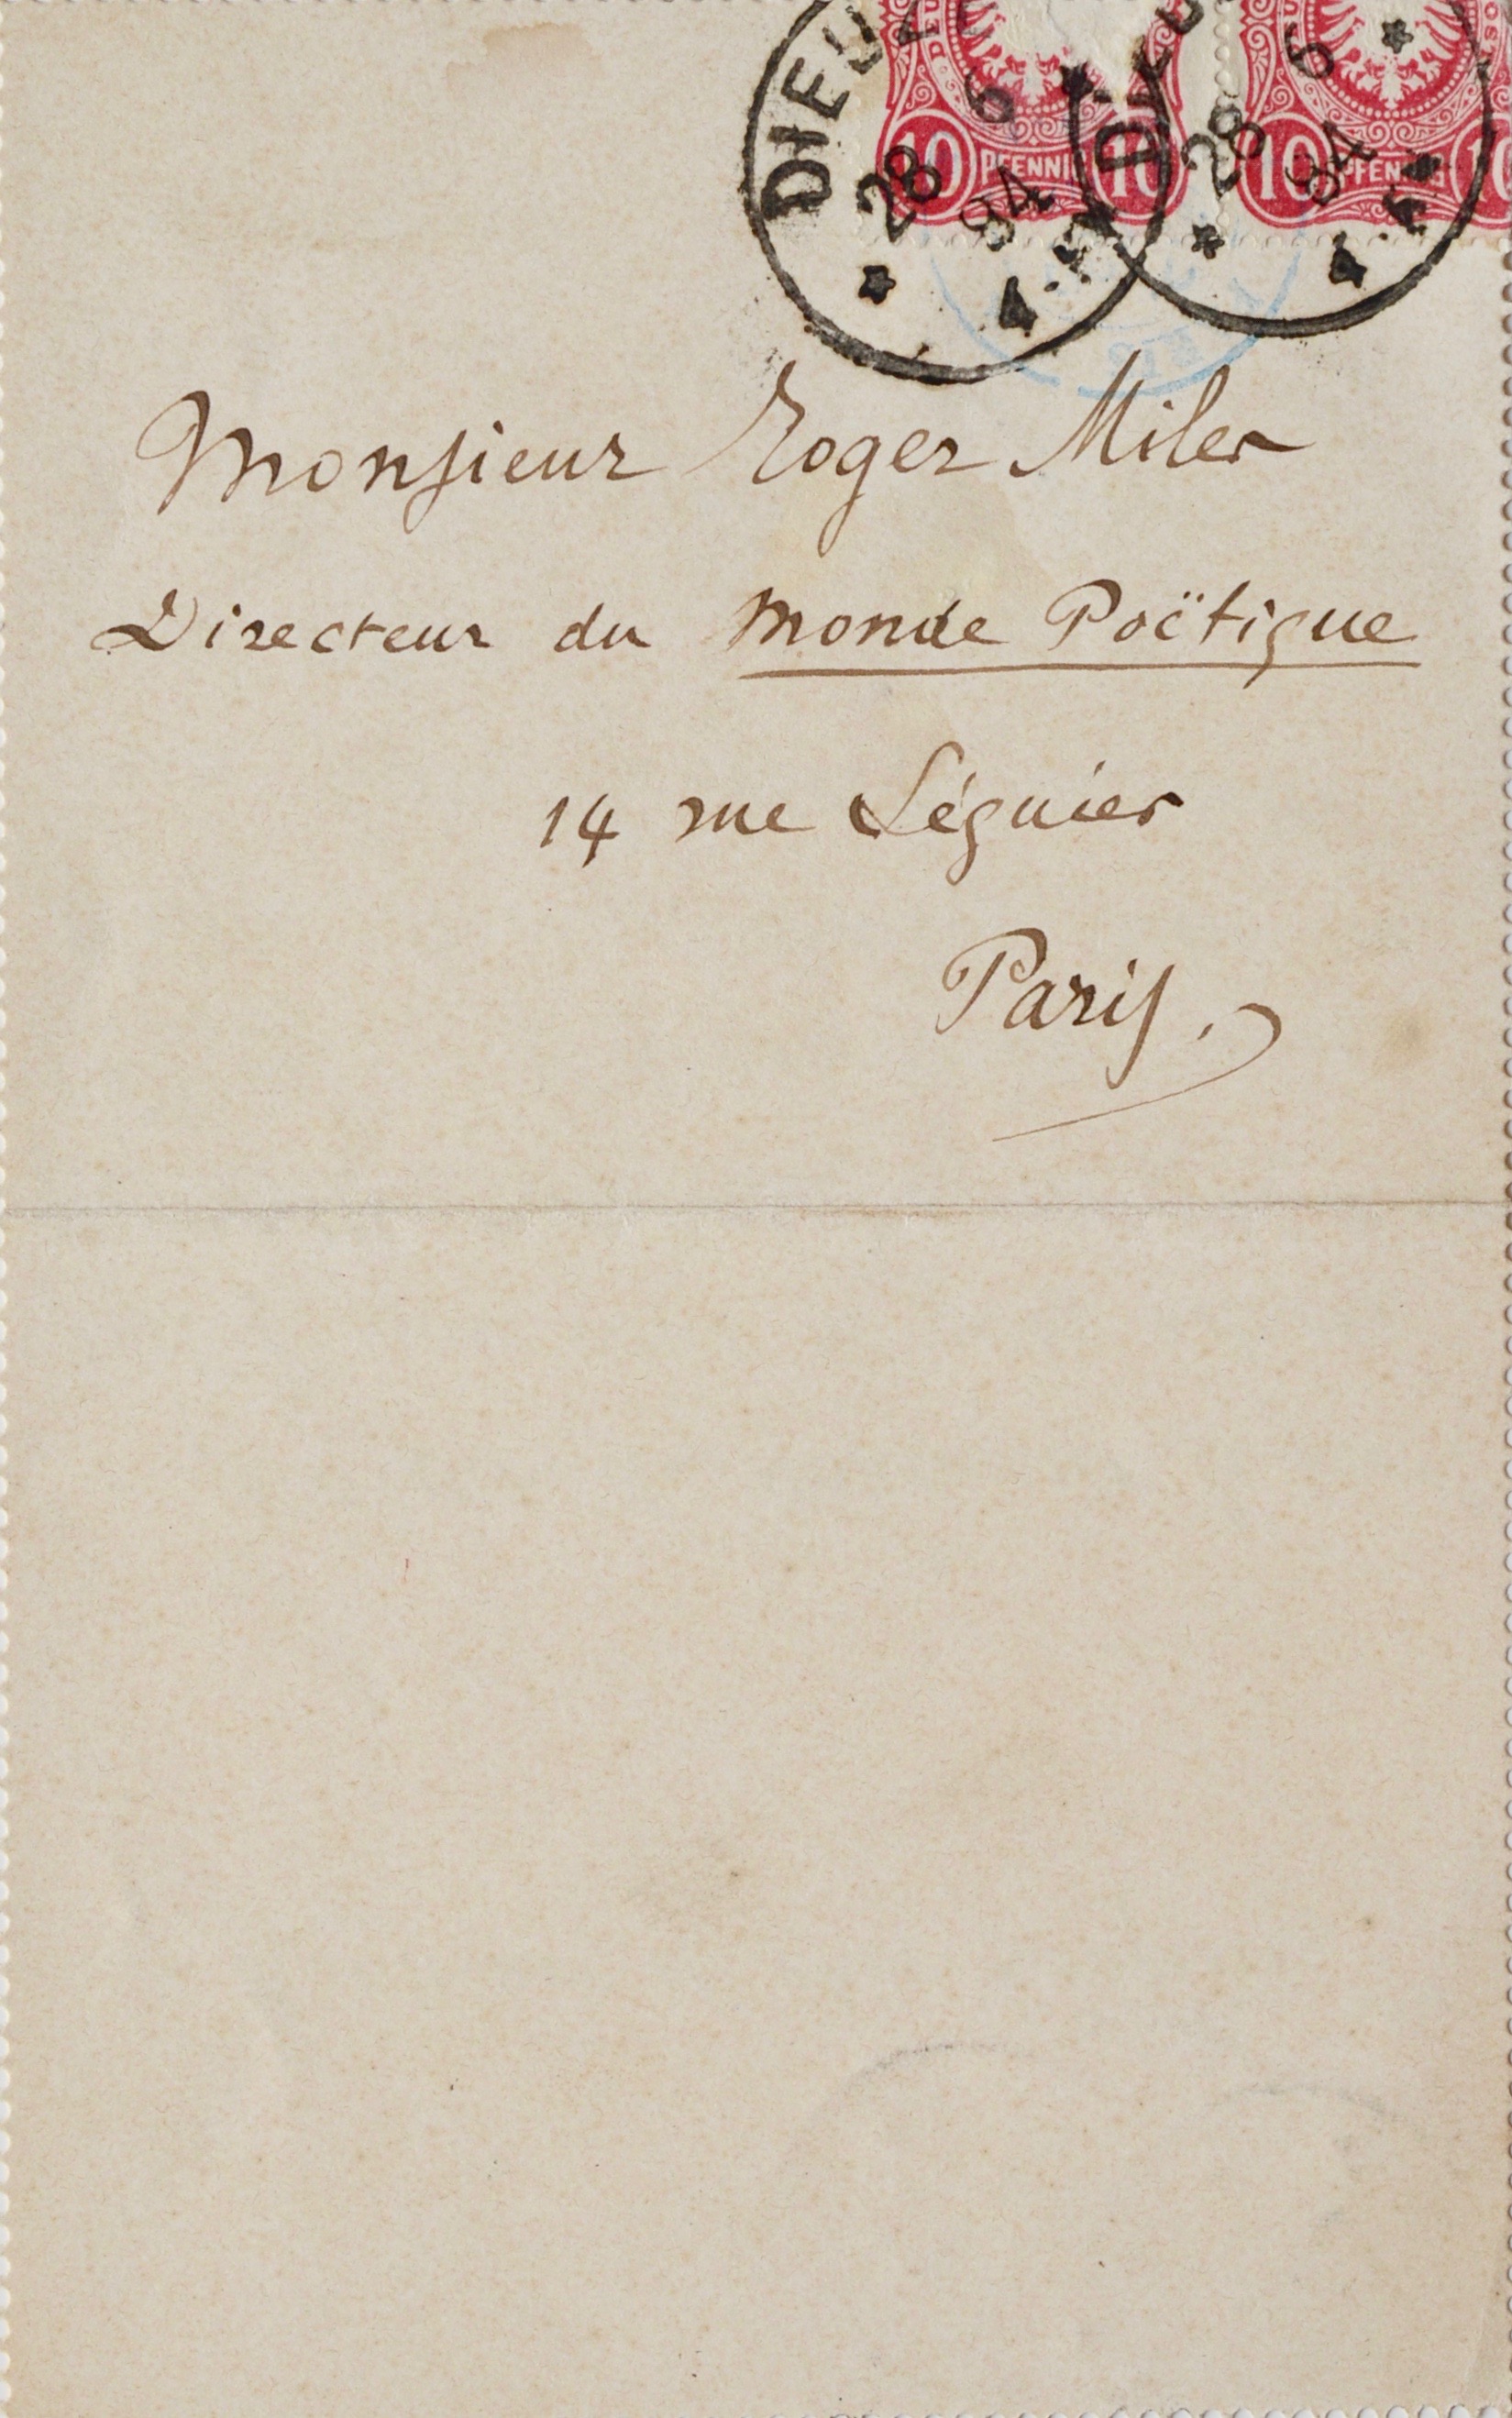 DIEUZ
28 6 94
4-5N
10 PFENNIG 10
28 6 94
10 PFENNIG 10
Monsieur Roger Miles
Directeur du Monde Poëtique
14 rue Séguier
Paris.